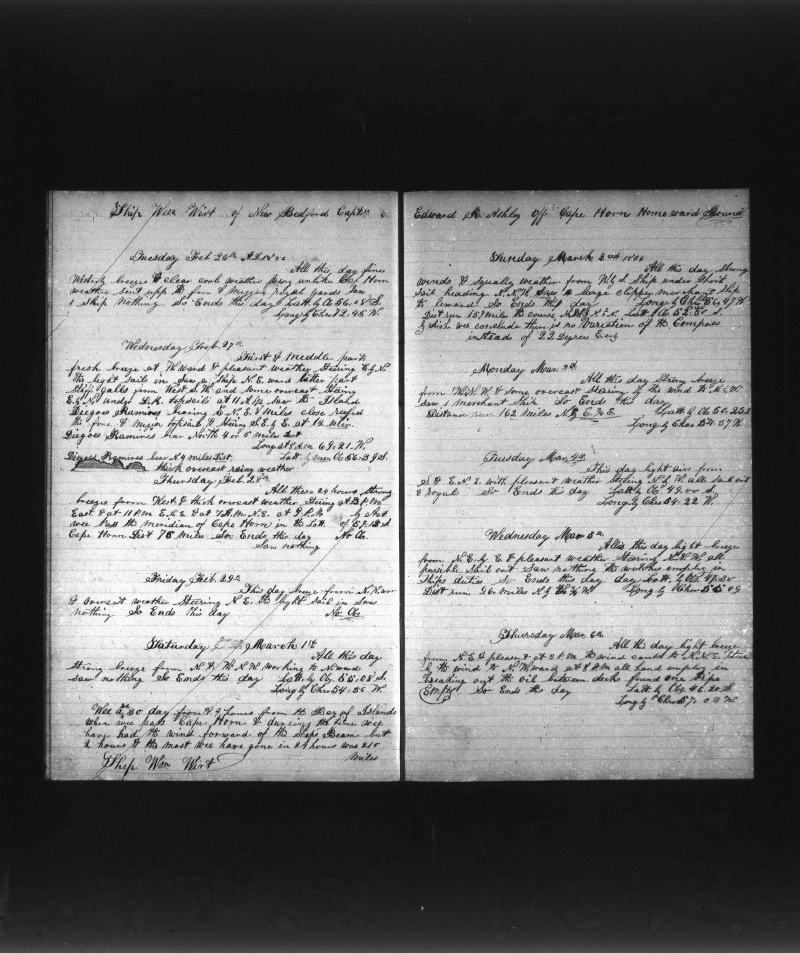 Ship Wm Wirt of New Bedford Captn
Tuesday Feb 26th
All this day fine
Westerly breeze & clear cool weather very unlike Cape Horn
weather sent upp the fore & Mizzen royal yards Saw
1 Ship nothing So Ends this day Latt. by Ob 56.08 S.
Long by Chro 72.45 W
Wednesday Feb. 27th
First & Meddle part
fresh breeze at W ward & pleasant weather Steering E by N
the light sails in Saw a Ship N.E. ward latter part
Stif Gails from West S.W. and some overcast Steering
E by N under topsails at 11 A.M. Saw the Islands
Diegoes Ramires bearing E.N.E. 8 Miles close reefed
the fore & Mizen topsails & Steering S.E. by E. at 12
Diegoes Ramires bear North 4 or 5 miles Dist
Long at 8 A.M. 69.21. W.
Diegos Ramires bear N 4 miles Dist Latt. by Ob 56.39 S.
thick overcast rainy weather
Thursday Feb. 28th
All these 24 hours Strong
breeze from West & thick overcast weather Steering at 3 P.M.
East & at 11 P.M. E.N.E. & at 7 A.M. N.E. at 9 P.M.
wee Pass the meridian of Cape Horn in the Latt. of 57.18 S
Cape Horn Dist 75 Miles So Ends this day No Ob.
Saw nothing
Friday Feb. 29th
This day breeze from N.W. ward
& overcast weather Steering N E. the light sail in Saw
nothing So Ends this day No. Ob
Saturday March 1st
All this day
strong breeze from N & W.N.W working to N. ward
saw nothing So Ends this day Latt. by Ob. 55.08 S.
Long by Chro 54.56 W
Wee are 30 day from the Bay of Islands
when wee pass Cape Horn & during the time wee
have had the wind forward of the Ships Beam but
2 hours & the most wee have gone in 24 hours was 210
Miles
Ship Wm Wirt
Edward R. Ashley Off Cape Horn Homeward Bound
Sunday March 2nd 1856
All this day Strong
winds & Squally weather from W by S. Ship under Short
Sail heading N.N.W Saw a large clipper merchant Ship
to leward So Ends this day Long by Chro 56.47 W
Dist run 157 Miles the course Latt. by Ob. 52.50 S.
by wich wee conclude there is no Variation of the Compass
insteads of 22 Degrees
Monday Mar. 3rd
All this day Strong breeze
from W.N.W. & some overcast Staring by the wind to
Saw 1 merchant Ship So Ends this day
Distance run 162 Miles Latt by Ob 50.
Long by Chro 54.37 W.
Tuesday Mar. 4th
This day light air from
S & E.N.E. with pleasant weather stering N by W. all sail out
& Royal So Ends this day Latt by Ob. 49.00 S.
Long by Chro 54.22 W.
Wednesday Mar 5th
All this day light breeze
from N.E. by E & pleasant weather Steering N.N.W. all
possible Sail out Saw nothing the watches employ in
Ships duties So Ends this day Latt. by Ob 47.
Dist run 96 miles Long by Chro 55.09
Thursday Mar 6th
All this day light breeze
from N.E & pleasant at 3 P.M. the wind canted to N.N.E. Steer
by the wind to N.W. ward at 8 P.M. all hand employ in
breaking out the oil between decks found one Pipe
Empty So Ends the day Latt by Ob. 46.20 S.
Long by Chro 57.03 W